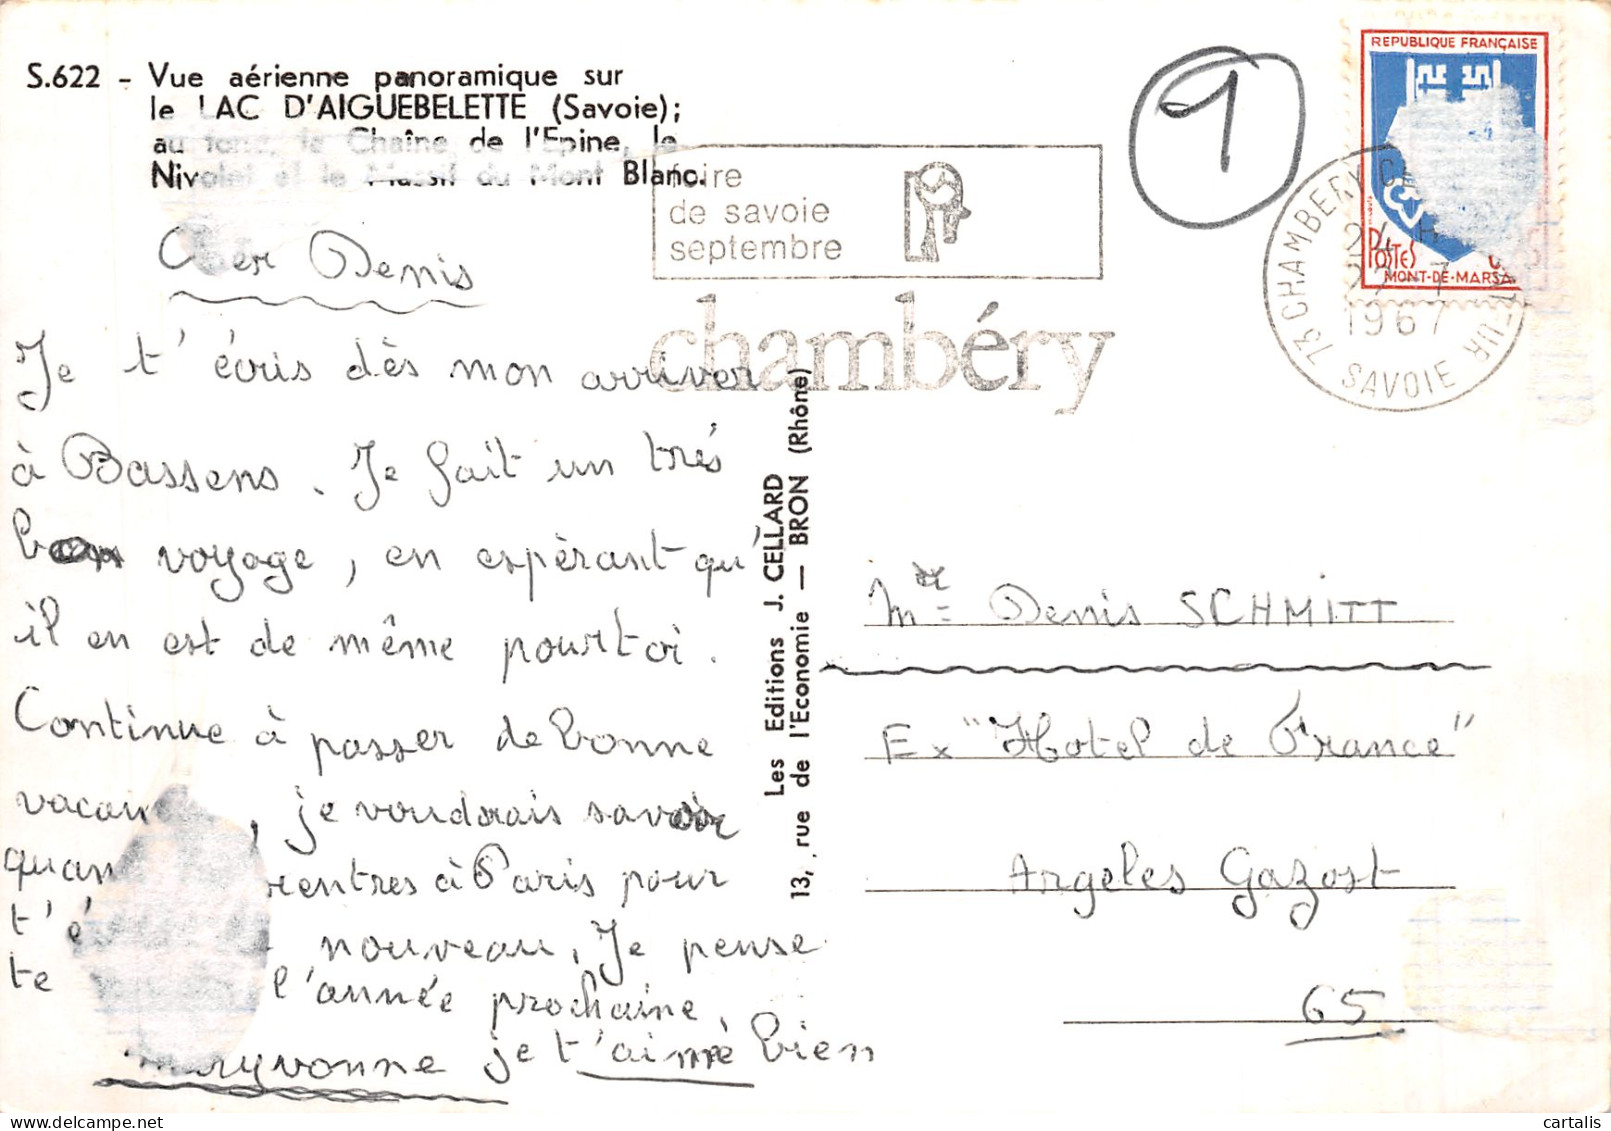 S.622 - Vue aérienne panoramique sur
le LAC D'AIGUEBELETTE (Savoie);
au fond, la Chaîne de l'Epine, le
Nivolet et le Massif du Mont Blanc.
foire
de savoie
septembre
chambéry
1
REPUBLIQUE FRANÇAISE
POSTES
MONT-DE-MARSA
73 CHAMBERY
SAVOIE
1967
Cher Denis
Je t'écris dès mon arriver
à Bassens. Je fait un très
bon voyage, en espèrant qu'
il en est de même pourtoi.
Continue à passer de bonne
vacan , je voudrais savoir
quan rentres à Paris pour
t'é nouveau. Je pense
te l'année prochaine,
Maryvonne je t'aime bien
Les Editions J. CELLARD
13, rue de l'Economie — BRON (Rhône)
Mr= Denis SCHMITT
Ex "Hotel de France"
Argeles Gazost
65
delcampe.net
cartalis